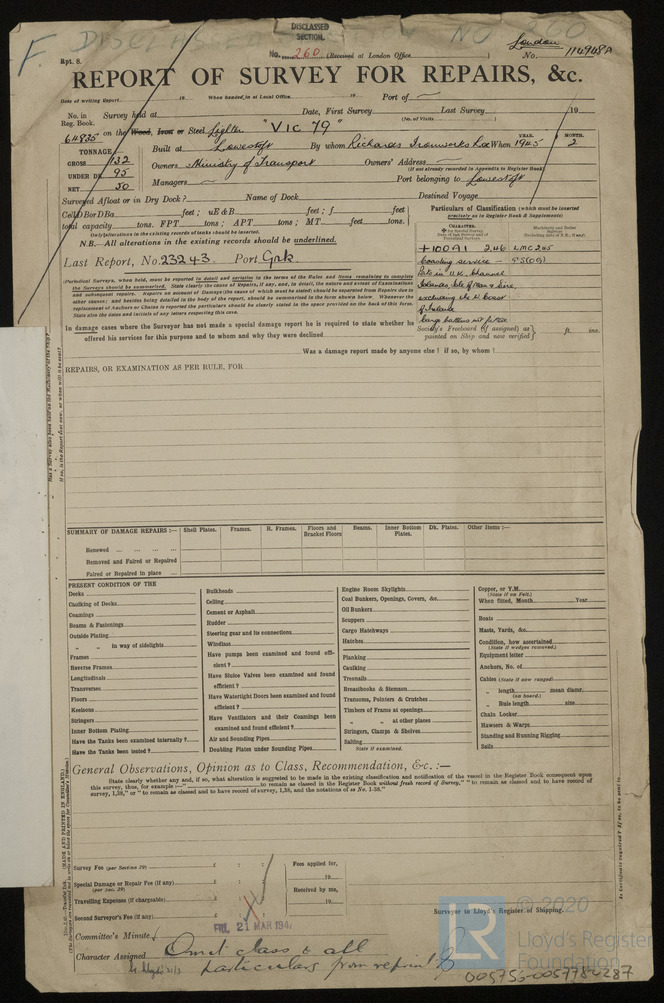 DISCLASSED
SECTION.
F. DISCLAS SECTION NO 260
London
Rpt. 8.
No. 260 (Received at London Office
No. 114948A
REPORT OF SURVEY FOR REPAIRS, &c.
Date of writing Report 19 When handed in at Local Office 19 Port of
No. in Survey held at Date, First Survey Last Survey 19
Reg. Book. (No. of Visits
64835 on the Wood, Iron or Steel Lighter "VIC 79"
YEAR. MONTH.
TONNAGE Built at Lowestoft By whom Richards Ironworks Ld When 1945 2
GROSS 132 Owners Ministry of Transport Owners' Address
UNDER DK 95 (if not already recorded in Appendix to Register Book)
NET 50 Managers Port belonging to Lowestoft
Surveyed Afloat or in Dry Dock? Name of Dock Destined Voyage
Cell D Bor D Ba feet; uE&B feet; f feet
total capacity tons. FPT tons; APT tons; MT feet tons.
Only alterations in the existing records of tanks should be inserted.
N.B.—All alterations in the existing records should be underlined.
Last Report, No. 23243 Port Grk.
Particulars of Classification (which must be inserted
precisely as in Register Book & Supplements)
+100A1 2.46 LMC 2.45
coasting service —
excluding the W. Coast
of Ireland
Cargo battens not fitted
Society's Freeboard (if assigned) as
painted on Ship and now verified ft. ins.
(Periodical Surveys, when held, must be reported in detail and seriatim in the terms of the Rules and Items remaining to complete
the Surveys should be summarised. State clearly the cause of Repairs, if any, and, in detail, the nature and extent of Examinations
and subsequent repairs. Repairs on account of Damage (the cause of which must be stated) should be separated from Repairs due to
other causes; and besides being detailed in the body of the report, should be summarised in the form shown below. Whenever the
replacement of Anchors or Chains is reported the particulars should be clearly stated in the space provided on the back of this form.
State also the dates and initials of any letters respecting this case.
In damage cases where the Surveyor has not made a special damage report he is required to state whether he
offered his services for this purpose and to whom and why they were declined
Was a damage report made by anyone else? if so, by whom?
REPAIRS, OR EXAMINATION AS PER RULE, FOR
SUMMARY OF DAMAGE REPAIRS :— Shell Plates. Frames. R. Frames. Floors and Bracket Floors Beams. Inner Bottom Plates. Dk. Plates. Other Items :—
Renewed ... ... ... ...
Removed and Faired or Repaired
Faired or Repaired in place ...
PRESENT CONDITION OF THE
Decks
Caulking of Decks
Coamings
Beams & Fastenings
Outside Plating
" " in way of sidelights
Frames
Reverse Frames
Longitudinals
Transverses
Floors
Keelsons
Stringers
Inner Bottom Plating
Have the Tanks been examined internally?
Have the Tanks been tested?
Bulkheads
Ceiling
Cement or Asphalt
Rudder
Steering gear and its connections
Windlass
Have pumps been examined and found efficient?
Have Sluice Valves been examined and found
efficient?
Have Watertight Doors been examined and found
efficient?
Have Ventilators and their Coamings been
examined and found efficient?
Air and Sounding Pipes
Doubling Plates under Sounding Pipes
Engine Room Skylights
Coal Bunkers, Openings, Covers, &c.
Oil Bunkers
Scuppers
Cargo Hatchways
Hatches
Planking
Caulking
Treenails
Breasthooks & Stemson
Transoms, Pointers & Crutches
Timbers of Frame at openings
" " at other places
Stringers, Clamps & Shelves
Salting
State if examined.
Copper, or Y.M.
(State if on Felt.)
When fitted, Month Year
Boats
Masts, Yards, &c.
Condition, how ascertained
(State if wedges removed.)
Equipment letter
Anchors, No. of
Cables (State if now ranged)
" length mean diamr.
(on board.)
" Rule length size
Chain Locker
Hawsers & Warps
Standing and Running Rigging
Sails
General Observations, Opinion as to Class, Recommendation, &c. :—
State clearly whether any and, if so, what alteration is suggested to be made in the existing classification and notification of the vessel in the Register Book consequent upon
this survey, thus, for example :—" to remain as classed in the Register Book without fresh record of Survey," "to remain as classed and to have record of
survey, 1,38," or "to remain as classed and to have record of survey, 1,38, and the notations of ss No. 1-38."
Survey Fee (per Section 29) £ : : Fees applied for,
19
Special Damage or Repair Fee (if any) £ : : Received by me,
(per Sec. 29)
Travelling Expenses (if chargeable) £ : : 19
Second Surveyor's Fee (if any) £ : :
Surveyor to Lloyd's Register of Shipping.
FRI. 21 MAR 1947
Committee's Minute
Character Assigned Omit class & all
particulars from reprint
© 2020
LR
Lloyd's Register
Foundation
005756-005778-0287